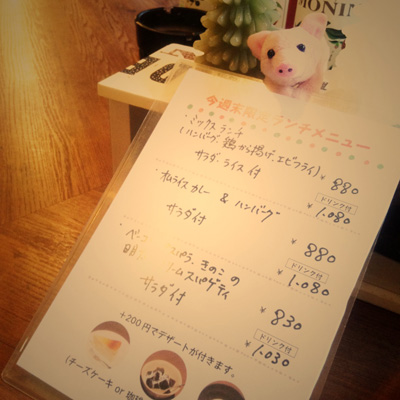 MONIN
今週末限定ランチメニュー
・ミックスランチ
(ハンバーグ、鶏から揚げ、エビフライ)
サラダ・ライス付
¥880
ドリンク付
¥1.080
・オムライスカレー & ハンバーグ
サラダ付
¥880
ドリンク付
¥1.080
・ベーコン きのこの
スパゲティ
サラダ付
¥830
ドリンク付
¥1.030
+200円でデザートが付きます。
(チーズケーキ or 珈琲